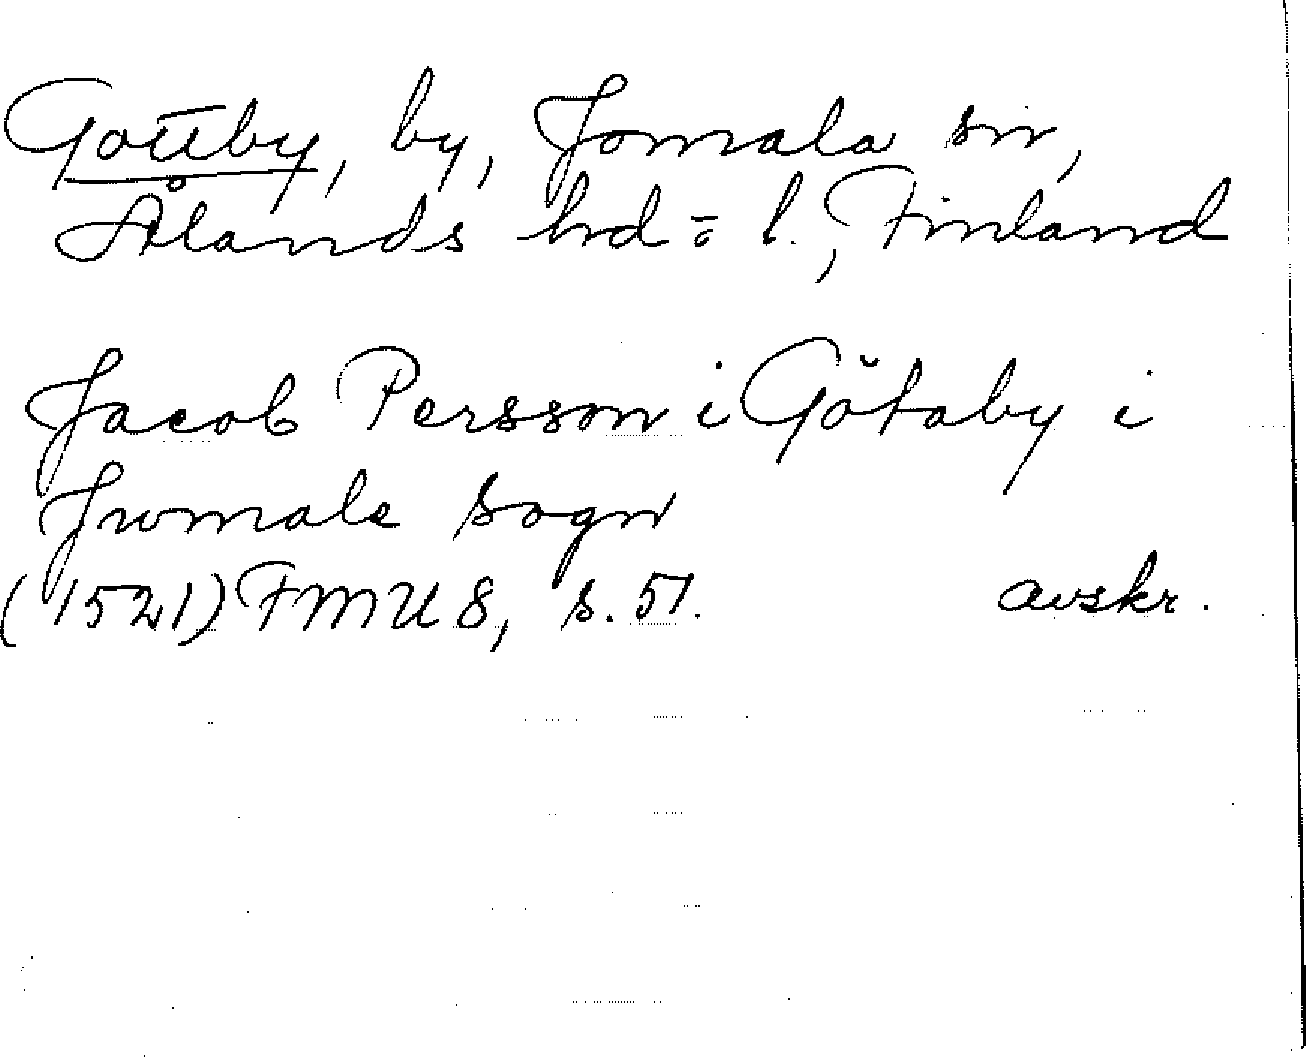 Gottby, by, Jomala sn,
Ålands hd = l., Finland
Jacob Persson i Götaby i
Jwmale Sogn
(1521) FMU 8, s. 51. avskr.